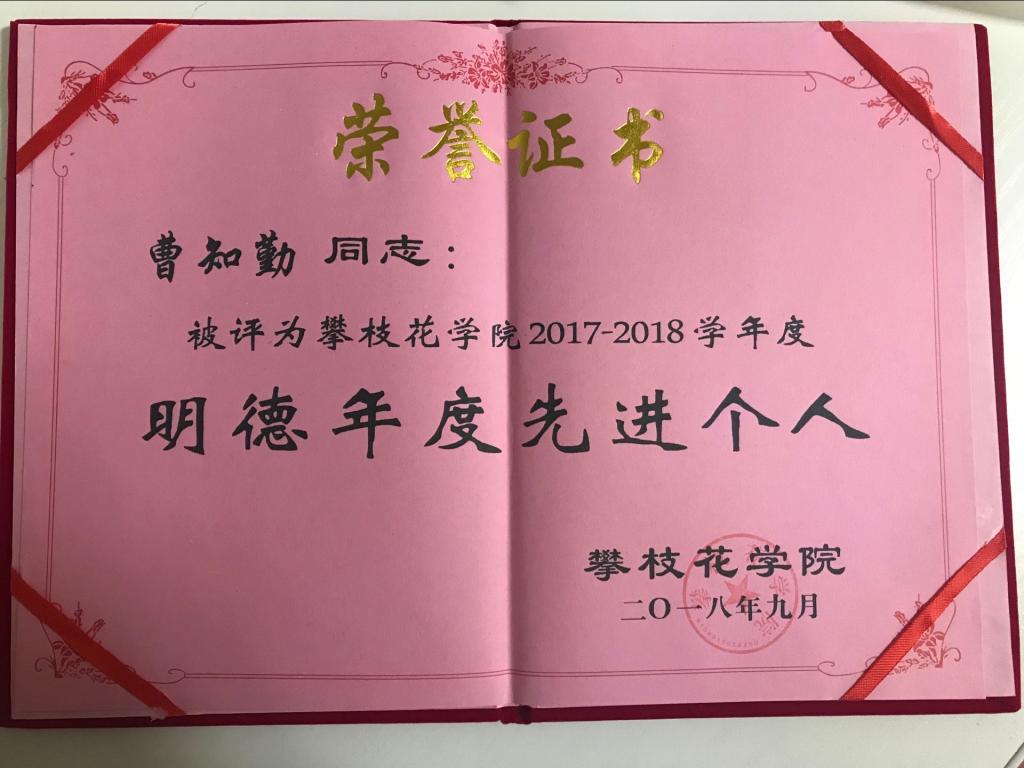 荣誉证书
曹知勤 同志：
被评为攀枝花学院2017-2018学年度
明德年度先进个人
攀枝花学院
二〇一八年九月